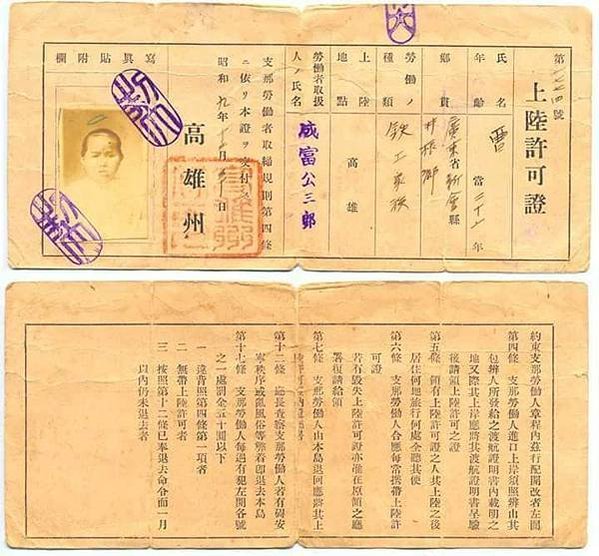 上陸許可證
氏名
年齡 當二十 年
鄉貫 廣東省新會縣
勞働ノ種類 鉄工家族
上陸地點 高雄
勞働者取扱人ノ氏名 成富公三郎
支那勞働者取締規則第四條
ニ依リ本證ヲ交付ス
昭和九年十 月 日
高雄州
寫眞貼附欄
約束支那勞働人章程內茲行配開改者左開
第四條 支那勞働人進口上岸須照辨出其
包辨人所發給之渡航證明書內載明之
地又際其上岸應將其渡航證明書呈驗
後請領上陸許可之證
第五條 領有上陸許可證之人其上陸之後
居住何地旅行何處全聽其便
第六條 支那勞働人合應每當携帶上陸許
可證
若有毀失上陸許可證亦准在原領之廳
署復請給領
第七條 支那勞働人由本島退回應將其上
第十二條 廳長查察支那勞働人若有碍安
寧秩序或亂風俗等弊着卽退去本島
第十七條 支那勞働人每遇有犯左開各號
之一處罰金五十圓以下
一 違背照第四條第一項者
二 無帶上陸許可者
三 按照第十二條已奉退去命令而一月
以內仍未退去者